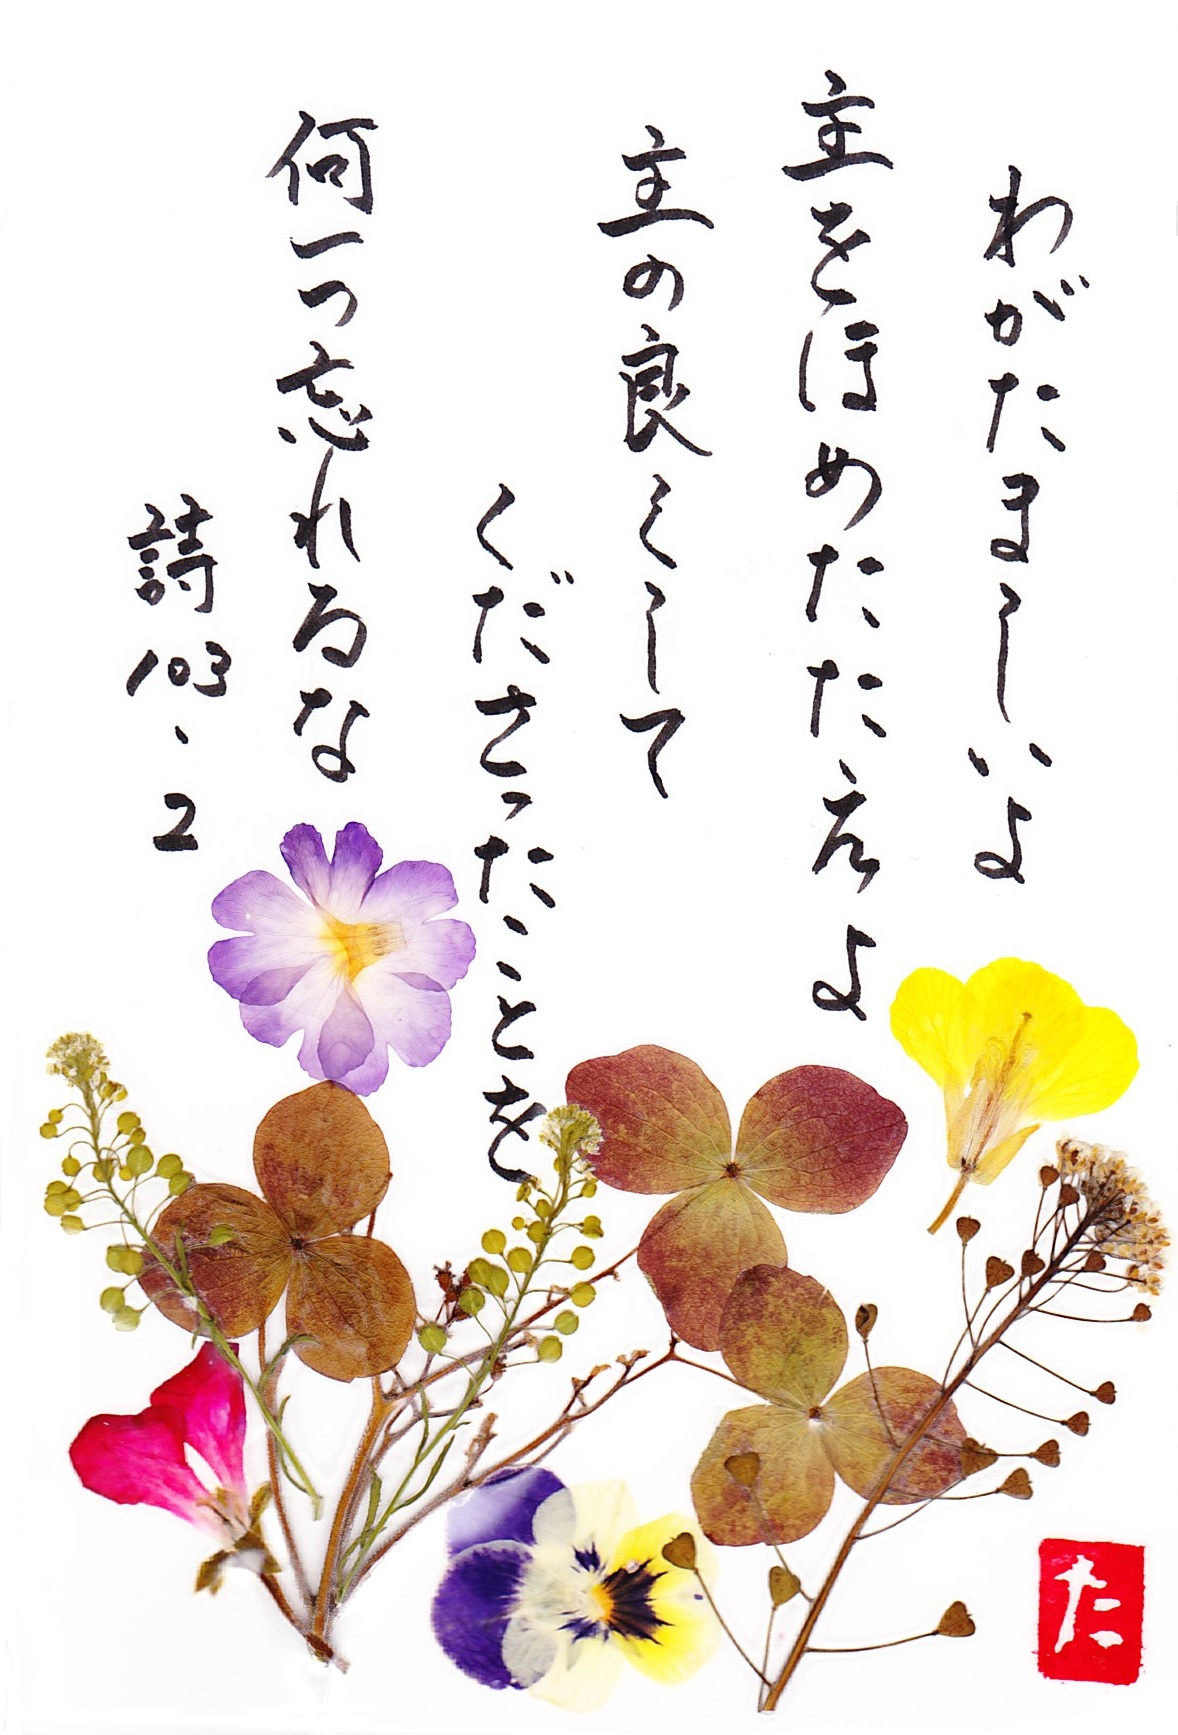 わがたましいよ
主をほめたたえよ
主の良くして
くださったことを
何一つ忘れるな
詩103・2
た